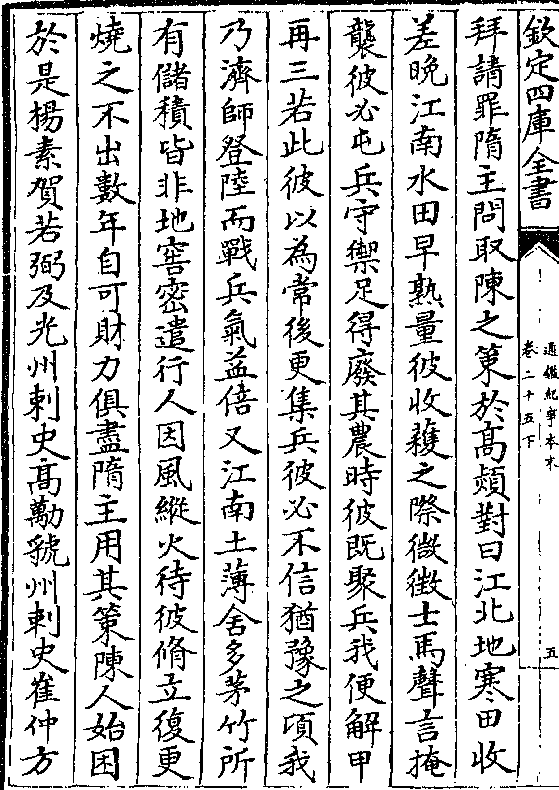 欽定四庫全書
通鑑紀事本末
卷二十五下
五
拜請罪隋主問取陳之策於高熲對曰江北地寒田收
差晚江南水田早熟量彼收穫之際微徴士馬聲言掩
襲彼必屯兵守禦足得廢其農時彼既聚兵我便解甲
再三若此彼以為常後更集兵彼必不信猶豫之頃我
乃濟師登陸而戰兵氣益倍又江南土薄舍多茅竹所
有儲積皆非地窖密遣行人因風縱火待彼脩立復更
燒之不出數年自可財力俱盡隋主用其策陳人始困
於是楊素賀若弼及光州刺史高勱虢州刺史崔仲方